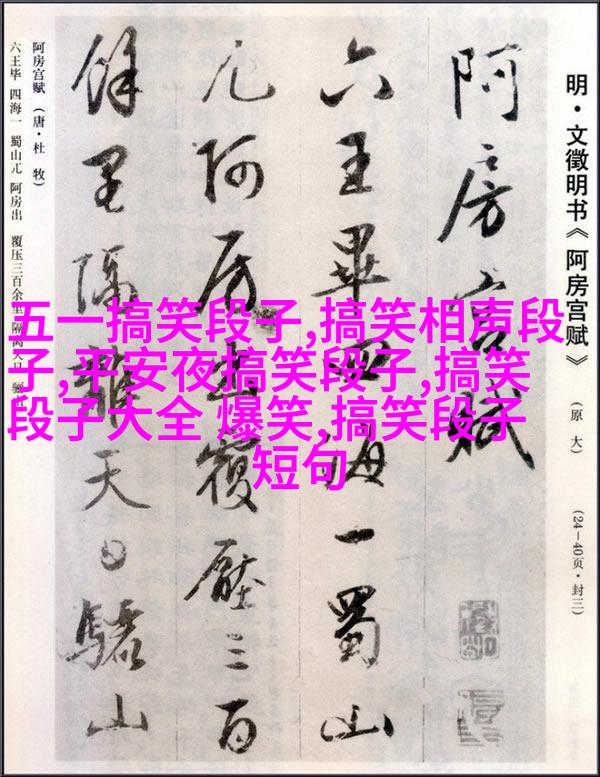 明·文徵明书《阿房宫赋》（原大）（24—40页·封三）
阿房宮賦
六王畢四海一蜀山
兀阿房出覆壓三百
餘里隔離天日驪山
阿房宫赋（唐·杜牧）
六王毕 四海一 蜀山兀 阿房出 覆压三百余里 隔离天日
五一搞笑段子,搞笑相声段
子,平安夜搞笑段子,搞笑
段子大全 爆笑,搞笑段子
短句